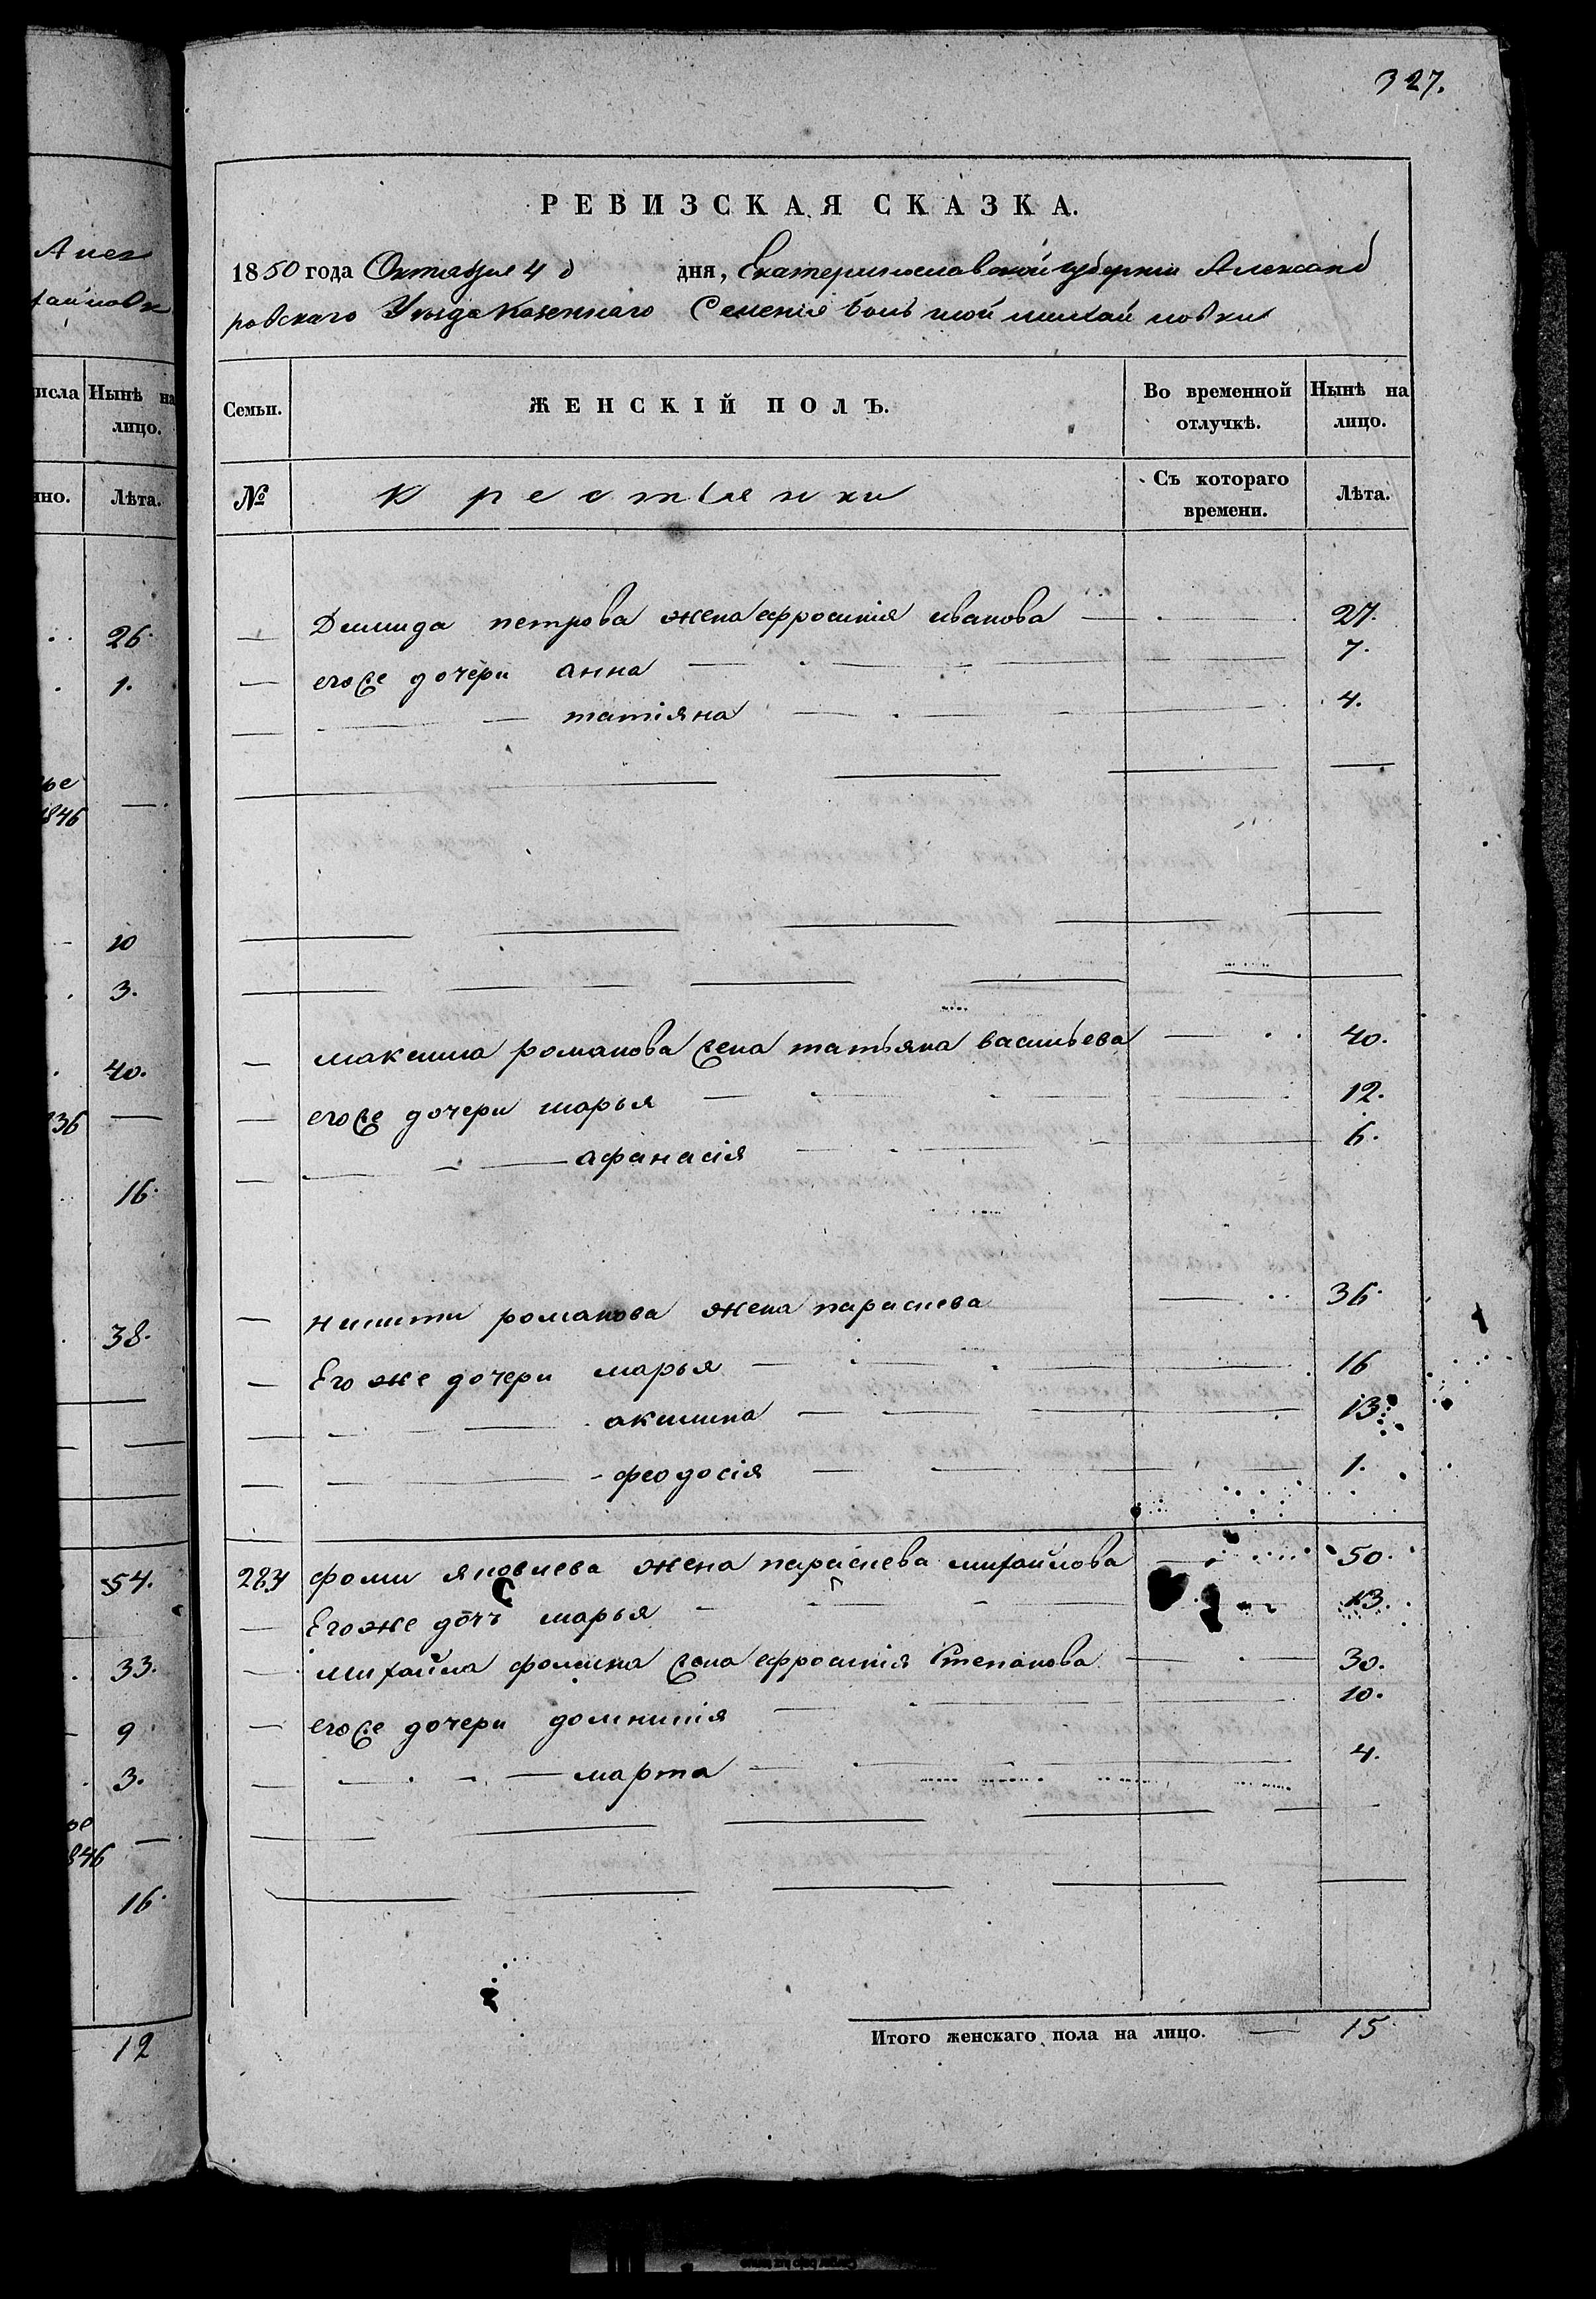 327.
РЕВИЗСКАЯ СКАЗКА.
1850 года Октября 4 д дня, Екатеринославской губернии Александ
ровскаго Уезда Казеннаго Селенія большой михайловки
Алек
хайловк
Семьи. ЖЕНСКІЙ ПОЛЪ. Во временной отлучкѣ. Нынѣ на лицо.
исла Нынѣ на лицо.
№ Крестьянки Съ котораго времени. Лѣта.
нно. Лѣта.
— Демида петрова жена афросинія иванова — 27.
— егоже дочери анна — 7.
— татіяна — 4.
— максима романова жена татьяна васильева — 40.
— егоже дочери марья — 12.
— афанасія — 6.
— никити романова жена парасмева — 36.
— Его же дочери марья — 16
— акилина — 13.
— феодосія — 1.
283 фоми яковлева жена параскева михайлова — 50.
— Егоже дочъ марья — 13.
— михайла фомина жена афросинія Степанова — 30.
— егоже дочери домникія — 10.
— марта — 4.
Итого женскаго пола на лицо. — 15
26.
1.
ье
1846 —
10
3.
40.
36 —
16.
38.
54.
33.
9
3.
ое
846 —
16.
12